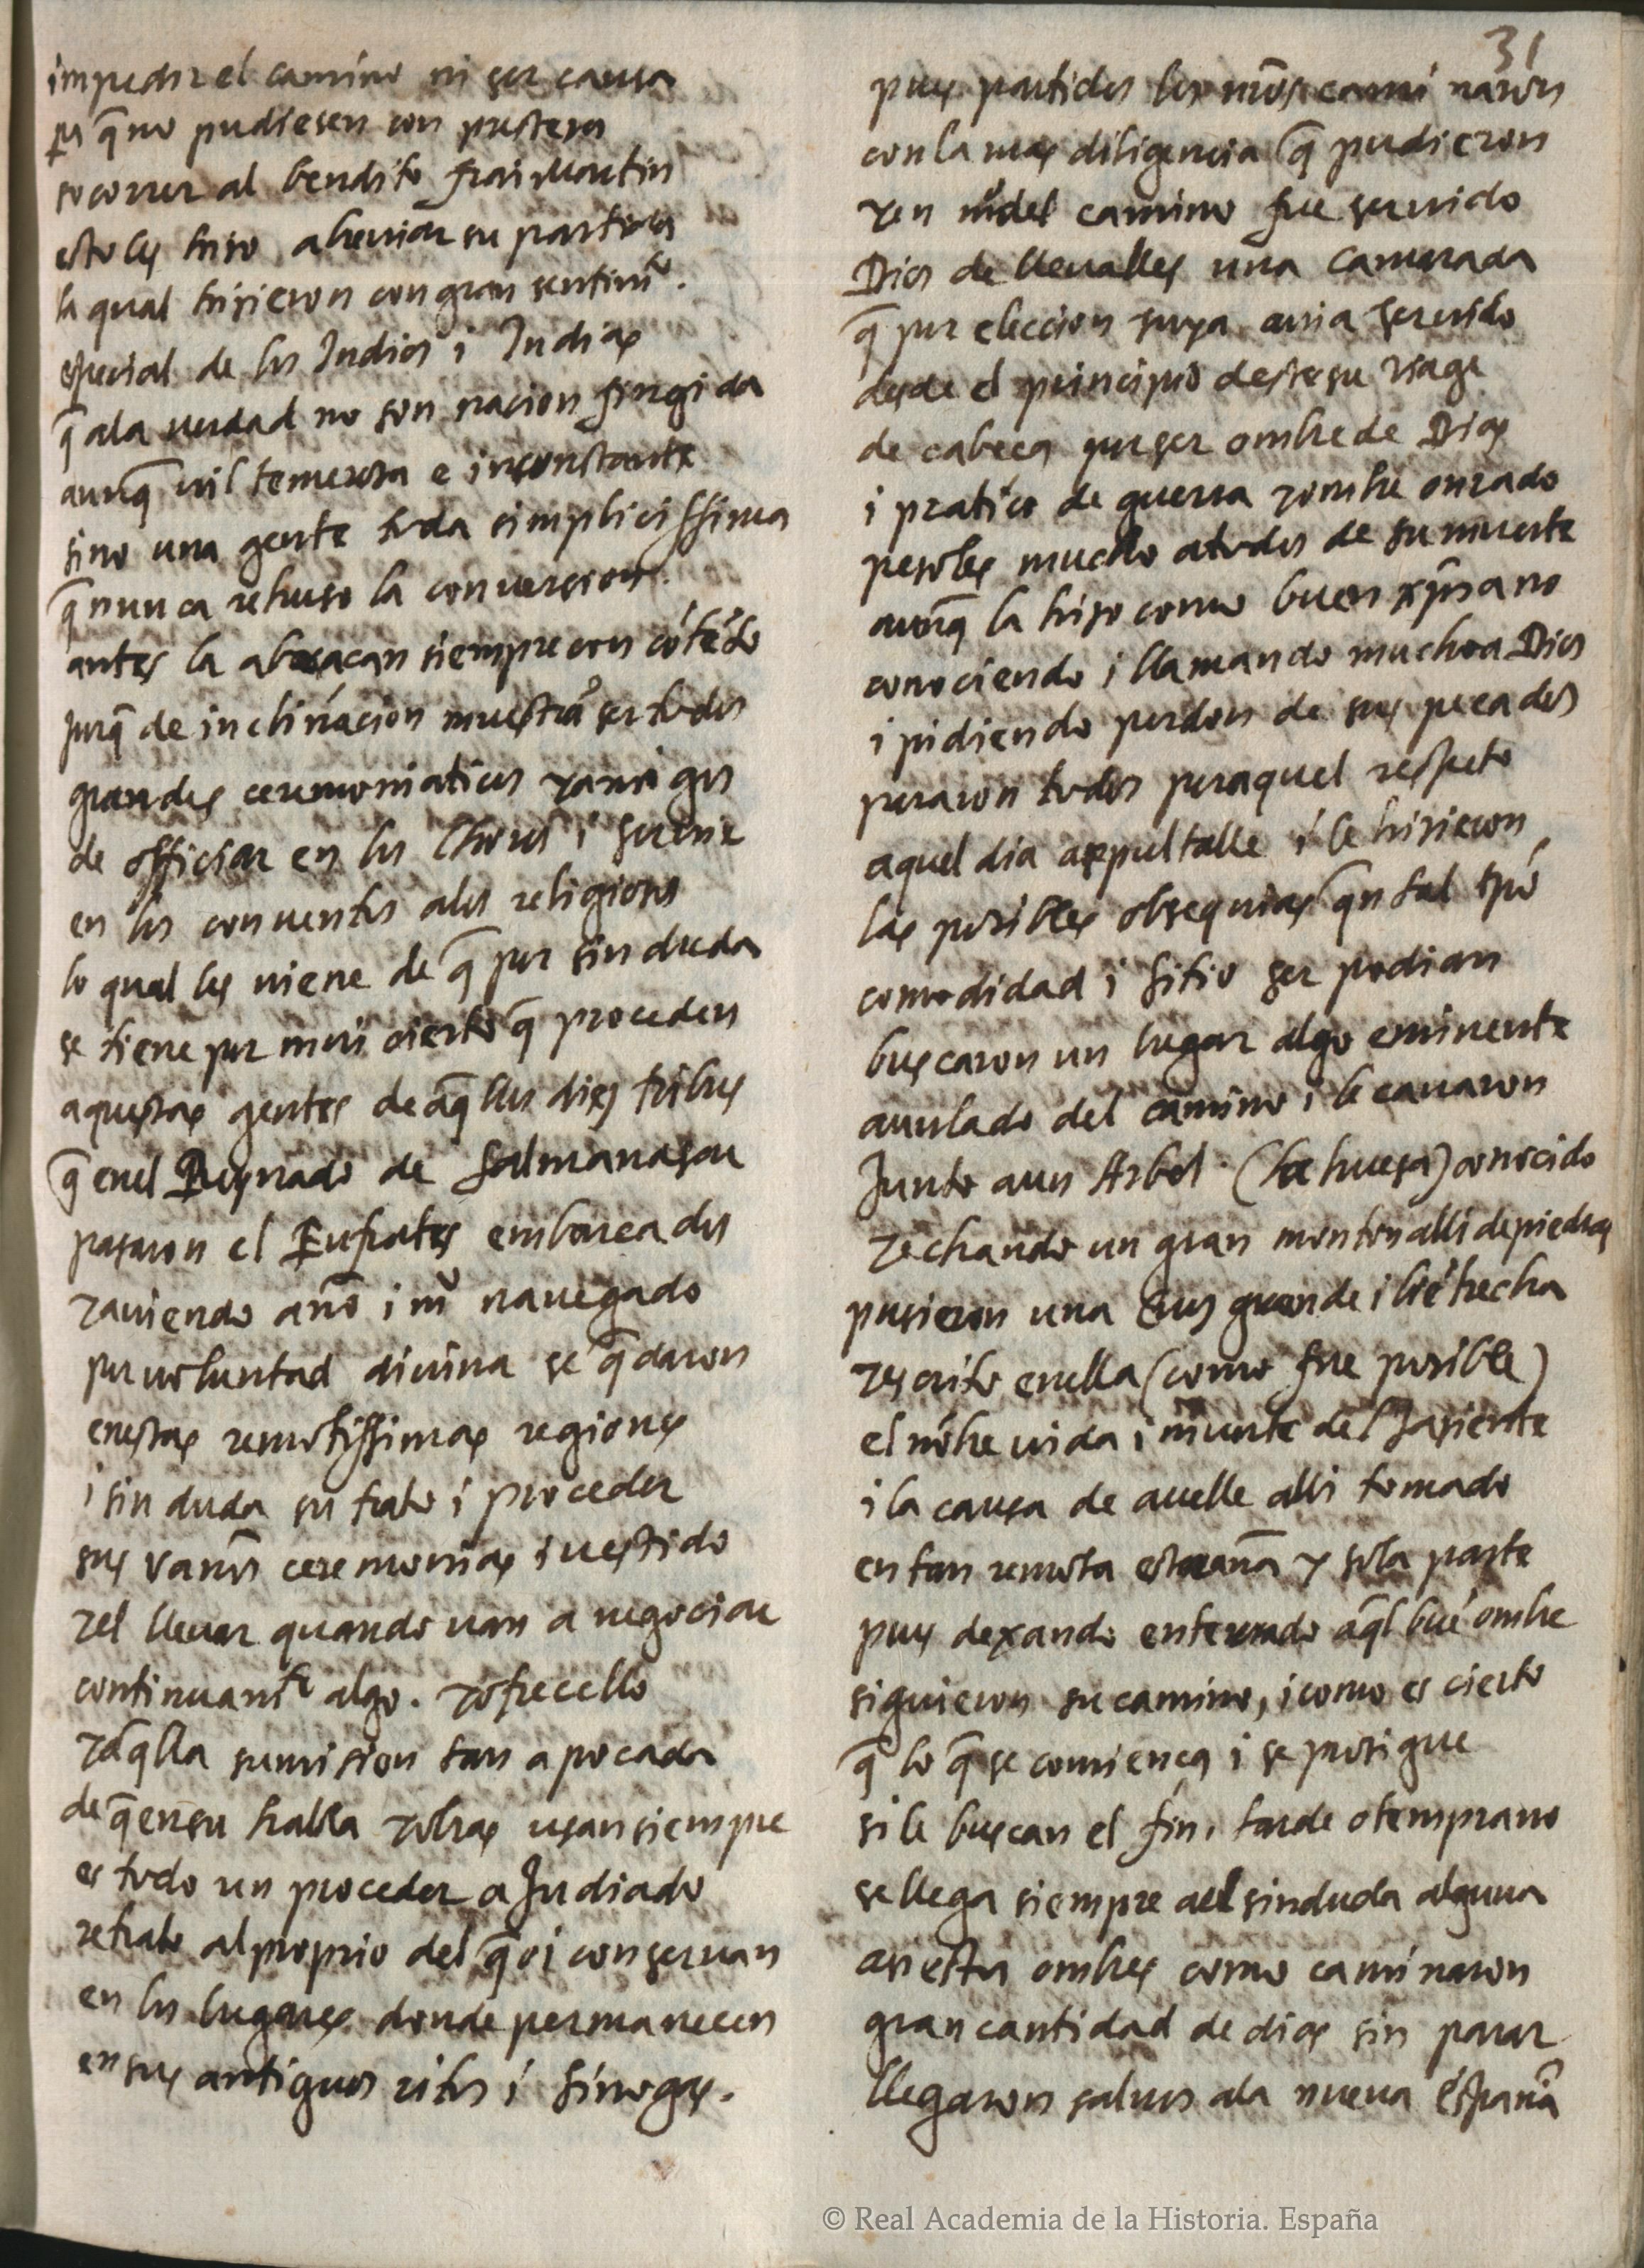 impedir el camino ni ser causa
pa q̃ no pudiesen con presteza
socorrer al bendito frai Martin
esto les hiso abreviar su partida
la qual hisieron con gran sentimº.
especial de los Indios i Indias
q̃ ala verdad no son nacion fingida
aunq̃ vil temerosa e inconstante
sino una gente toda simplicissima
q̃ nunca rehuso la conversion.
antes la abraçan siempre con cõtẽto
porq̃ de inclinacion muestrã ser todos
grandes ceremoniaticos y amigos
de officiar en los Choros i servir
en los conventos alos religiosos
lo qual les viene de q̃ por sin duda
se tiene por mui cierto q̃ proceden
aquestas gentes de aq̃llos dies tribus
q̃ enel Reynado de Salmanasar
pasaron el Eufrates embarcados
y aviendo año i mº navegado
por voluntad divina se q̃daron
enestas remotissimas regiones
i sin duda su trato i proceder
sus varias ceremonias i vestido
y el llevar quando van a negociar
continuamte algo. y ofrecello
y aq̃lla sumision tan apocada
de q̃ en su habla y obras usan siempre
es todo un proceder a Judiado
retrato al proprio del q̃ oi conservan
en los lugares donde permanecen
en sus antiguos ritos i sinogas.
31
pues partidos los nros caminaron
con la mas diligencia q̃ pudieron
y en mº del camino fue servido
Dios de llevalles una camarada
q̃ por eleccion suya avia servido
desde el principio deste su viage
de cabeça por ser ombre de Dias
i pratico de guerra y ombre onrado
pesoles mucho a todos de su muerte
aunq̃ la hiso como buen xp̃iano
conociendo i llamando mucho a Dios
i pidiendo perdon de sus pecados
pararon todos por aquel respeto
aquel dia a sepultalle i le hisieron
las posibles obsequias q̃ en tal tpo
comodidad i sitio ser podian
buscaron un lugar algo eminente
a un lado del camino i le cavaron
Junto a un Arbol (la huesa) conocido
y echando un gran monton alli de piedras
pusieron una Crus grande i biẽ hecha
y escrito enella (como fue posible)
el nõbre vida i muerte del Jasiente
i la causa de avelle alli tomado
en tan remota estraña y sola parte
pues dexando enterrado aq̃l buẽ ombre
siguieron su camino, i como es cierto
q̃ lo q̃ se comiença i se prosigue
si le buscan el fin, tarde o temprano
se llega siempre ael sin duda alguna
asi estos ombres como caminaron
gran cantidad de dias sin parar
llegaron salvos ala nueva España
© Real Academia de la Historia. España